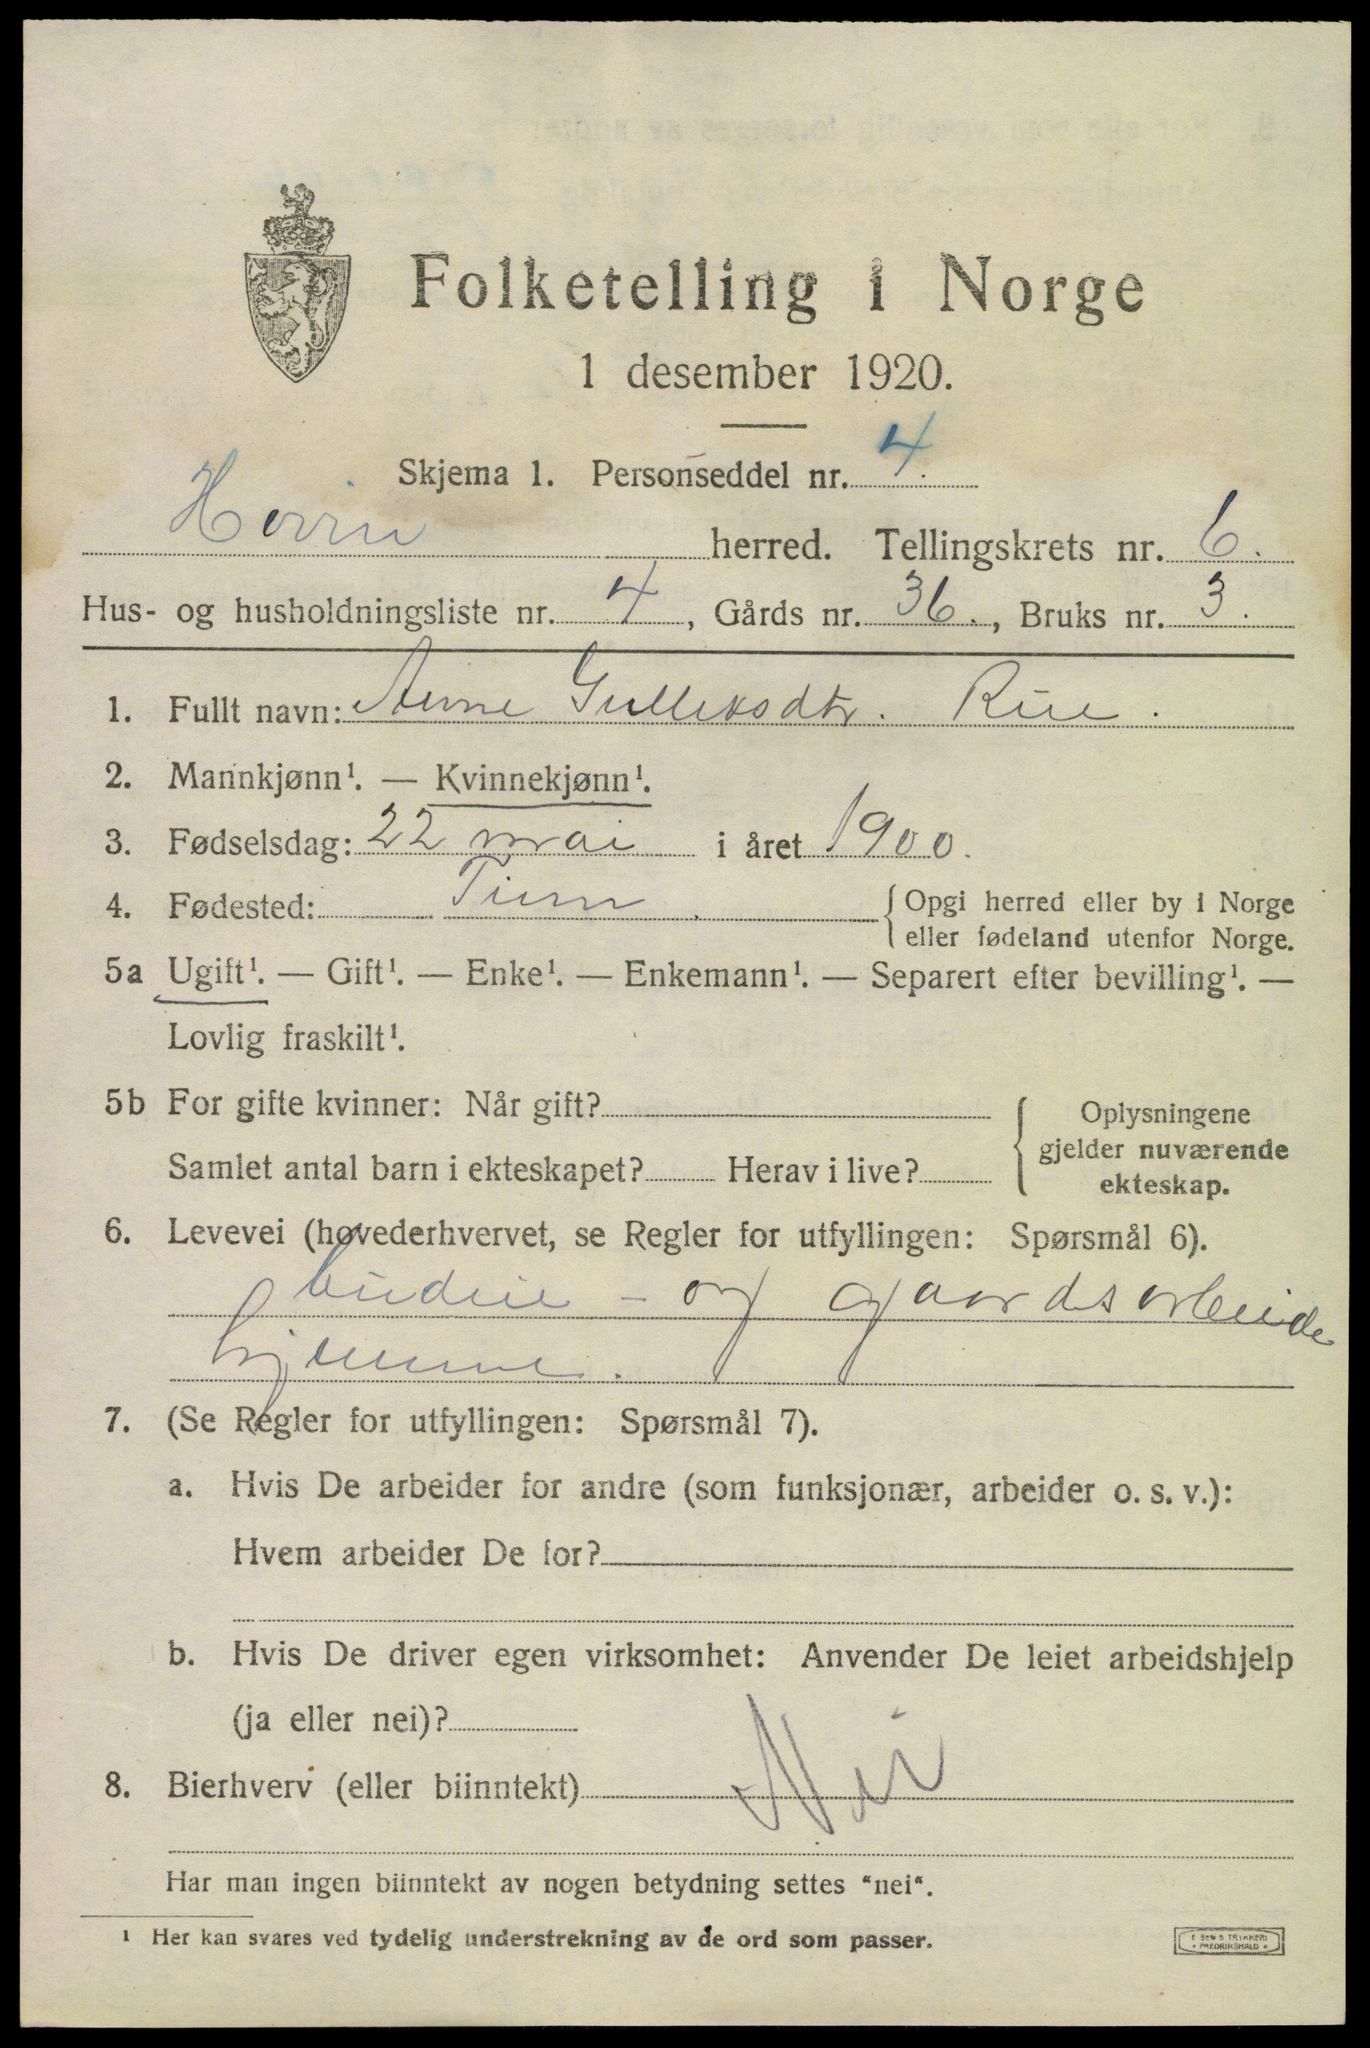 Folketelling i Norge
1 desember 1920.
Skjema 1. Personseddel nr. 4.
Hovin herred. Tellingskrets nr. 6.
Hus- og husholdningsliste nr. 4, Gårds nr. 36., Bruks nr. 3.
1. Fullt navn: Anne Gulleksdtr. Rue.
2. Mannkjønn¹. — Kvinnekjønn¹.
3. Fødselsdag: 22 mai i året 1900.
4. Fødested: Tinn. {Opgi herred eller by i Norge
eller fødeland utenfor Norge.
5a Ugift¹. — Gift¹. — Enke¹. — Enkemann¹. — Separert efter bevilling¹. —
Lovlig fraskilt¹.
5b For gifte kvinner: Når gift? Oplysningene
gjelder nuværende
Samlet antal barn i ekteskapet? Herav i live?
ekteskap.
6. Levevei (hovederhvervet, se Regler for utfyllingen: Spørsmål 6).
budeie - og gaardsarbeide
hjemme.
7. (Se Regler for utfyllingen: Spørsmål 7).
a. Hvis De arbeider for andre (som funksjonær, arbeider o. s. v.):
Hvem arbeider De for?
b. Hvis De driver egen virksomhet: Anvender De leiet arbeidshjelp
(ja eller nei)?
8. Bierhverv (eller biinntekt) Nei
Har man ingen biinntekt av nogen betydning settes “nei“.
¹ Her kan svares ved tydelig understrekning av de ord som passer.
E SEM S TRYKKERI
FREDRIKSHALD